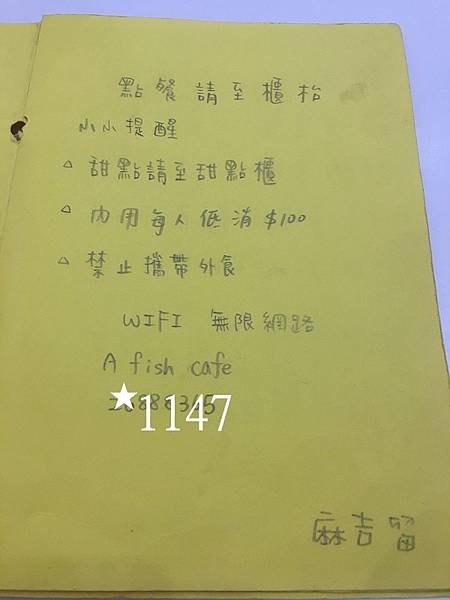 點餐請至櫃枱
小小提醒
△ 甜點請至甜點櫃
△ 內用每人低消$100
△ 禁止攜帶外食
WIFI 無限網路
A fish cafe
★1147
麻吉留